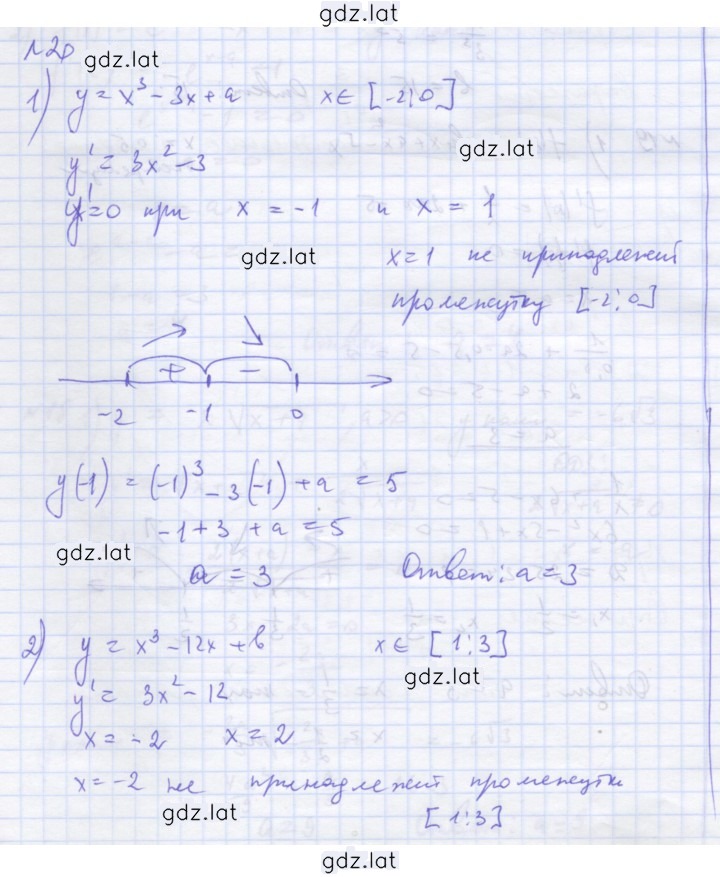 gdz.lat
№20
gdz.lat
1) y = x³ - 3x + a x ∈ [-2; 0]
gdz.lat
y' = 3x² - 3
y' = 0 при x = -1 и x = 1
gdz.lat
x = 1 не принадлежит
промежутку [-2; 0]
+ -
-2 -1 0
y(-1) = (-1)³ - 3(-1) + a = 5
-1 + 3 + a = 5
gdz.lat
a = 3 Ответ: a = 3
2) y = x³ - 12x + b x ∈ [1; 3]
gdz.lat
y' = 3x² - 12
x = -2 x = 2
x = -2 не принадлежит промежутку
gdz.lat
[1; 3]
gdz.lat